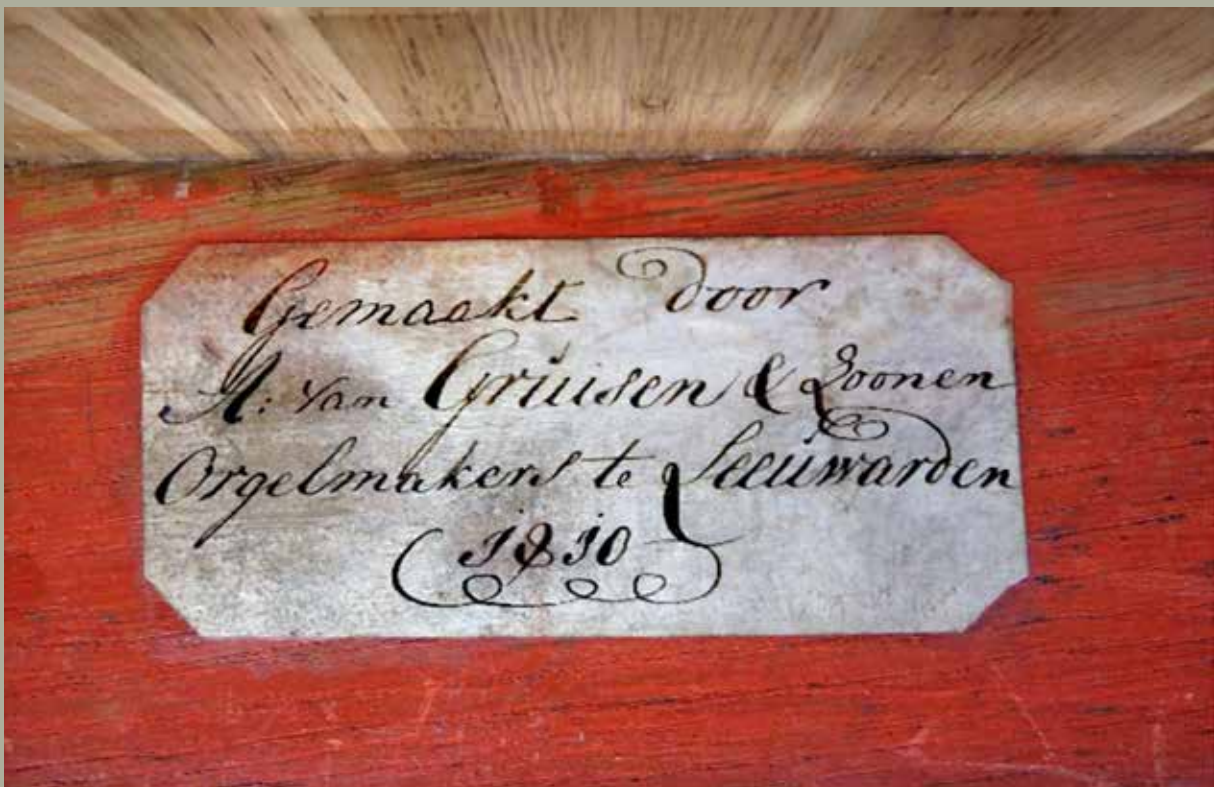 Gemaakt door
A: van Gruisen & Zoonen
Orgelmakers te Leeuwarden
1810